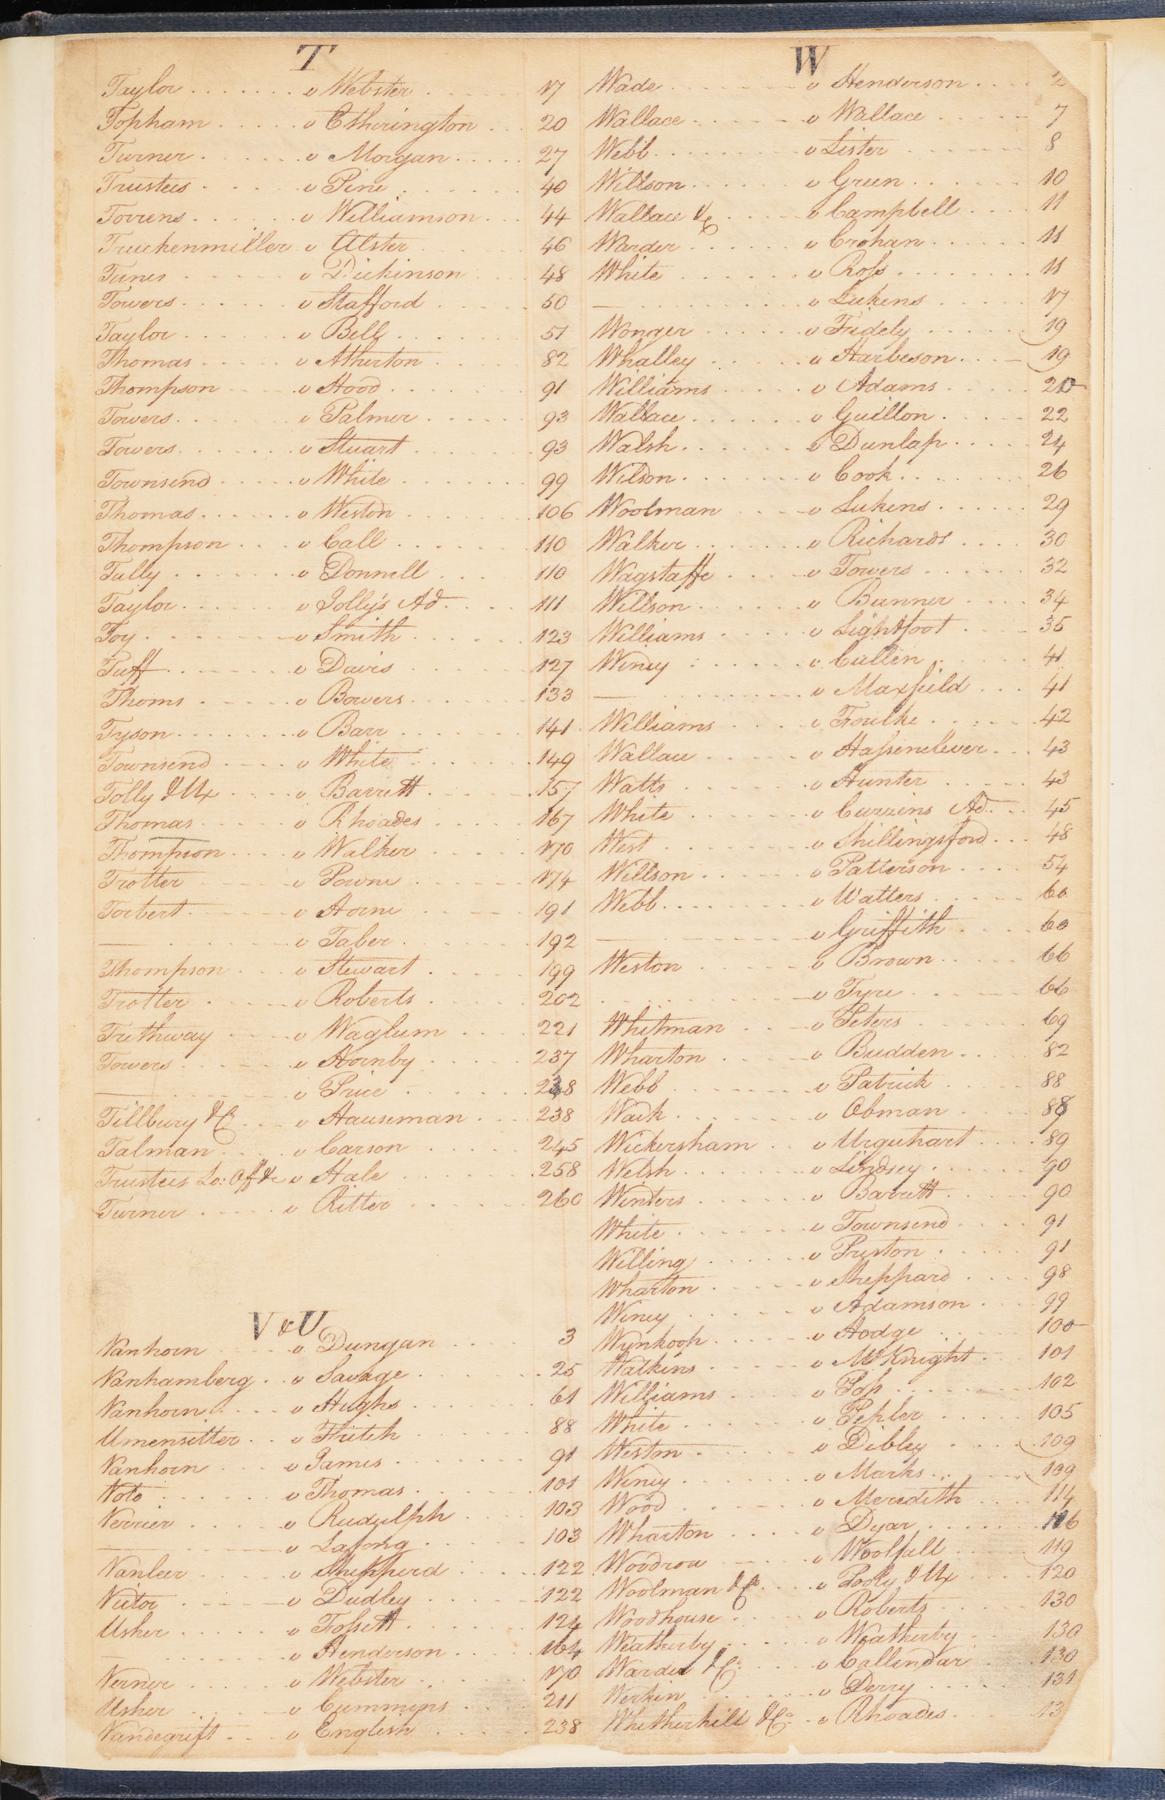 T
Taylor v Webster 17
Topham v Etherington 20
Turner v Morgan 27
Trustees v Pine 40
Torrens v Williamson 44
Truckenmiller v Alster 46
Tunes v Dickinson 48
Towers v Stafford 50
Taylor v Bell 51
Thomas v Atherton 82
Thompson v Hood 91
Towers v Palmer 93
Towers v Stuart 93
Townsend v White 99
Thomas v Weston 106
Thompson v Call 110
Tully v Donnell 110
Taylor v Jolly's Ad 111
Toy v Smith 123
Tuff v Davis 127
Thoms v Bowers 133
Tyson v Barr 141
Townsend v White 149
Tolly & Ux v Barrett 157
Thomas v Rhoades 167
Thompson v Walker 170
Trotter v Powne 174
Torbert v Horne 191
— v Taber 192
Thompson v Stewart 199
Trotter v Roberts 202
Trethway v Waglum 221
Towers v Hornby 237
— v Price 238
Tillbury &C v Hauseman 238
Talman v Carson 245
Trustees Lo: Off &c v Hale 258
Turner v Ritter 260
V & U
Vanhorn v Dungan 3
Vanhamberg v Savage 25
Vanhorn v Hughs 61
Umensetter v Fritch 88
Vanhorn v James 91
Voto v Thomas 101
Verrier v Rudulph 103
— v Lafong 103
Vanleer v Shepperd 122
Victor v Dudley 122
Usher v Fossett 124
— v Henderson 164
Verner v Webster 170
Usher v Cummings 211
Vandegrift v English 238
W
Wade v Henderson 2
Wallace v Wallace 7
Webb v Lister 8
Willson v Green 10
Wallace &C v Campbell 11
Warder v Crohan 11
White v Ross 11
— v Lukens 17
Wonger v Fridely 19
Whalley v Harbeson 19
Williams v Adams 20
Wallace v Guillon 22
Walsh v Dunlap 24
Wilson v Cook 26
Woolman v Lukens 29
Walker v Richards 30
Wagstaffe v Towers 32
Willson v Bunner 34
Williams v Lightfoot 35
Winey v Cullen 41
— v Maxfield 41
Williams v Foulke 42
Wallace v Hassenclever 43
Watts v Hunter 43
White v Currins Ad 45
West v Shillingsford 48
Willson v Patterson 54
Webb v Watters 60
— v Griffith 60
Weston v Brown 66
v Tyre 66
Whitman v Peters 69
Wharton v Budden 82
Webb v Patrick 88
Wack v Obman 88
Wickersham v Urquhart 89
Welsh v Lindsey 90
Winters v Barrett 90
White v Townsend 91
Willing v Preston 91
Wharton v Sheppard 98
Winey v Adamson 99
Wynkoop v Hodge 100
Watkins v McKnight 101
Williams v Foss 102
White v Pepler 105
Weston v Dibley 109
Winey v Marks 109
Wood v Meredith 114
Wharton v Dyar 116
Woodrow v Woolfall 119
Woolman &Co v Pooly & Ux 120
Woodhouse v Roberts 130
Weatherby v Weatherby 130
Warder &C v Callendar 130
Werkin v Derry 131
Whitherhilt &Co v Rhoades 13